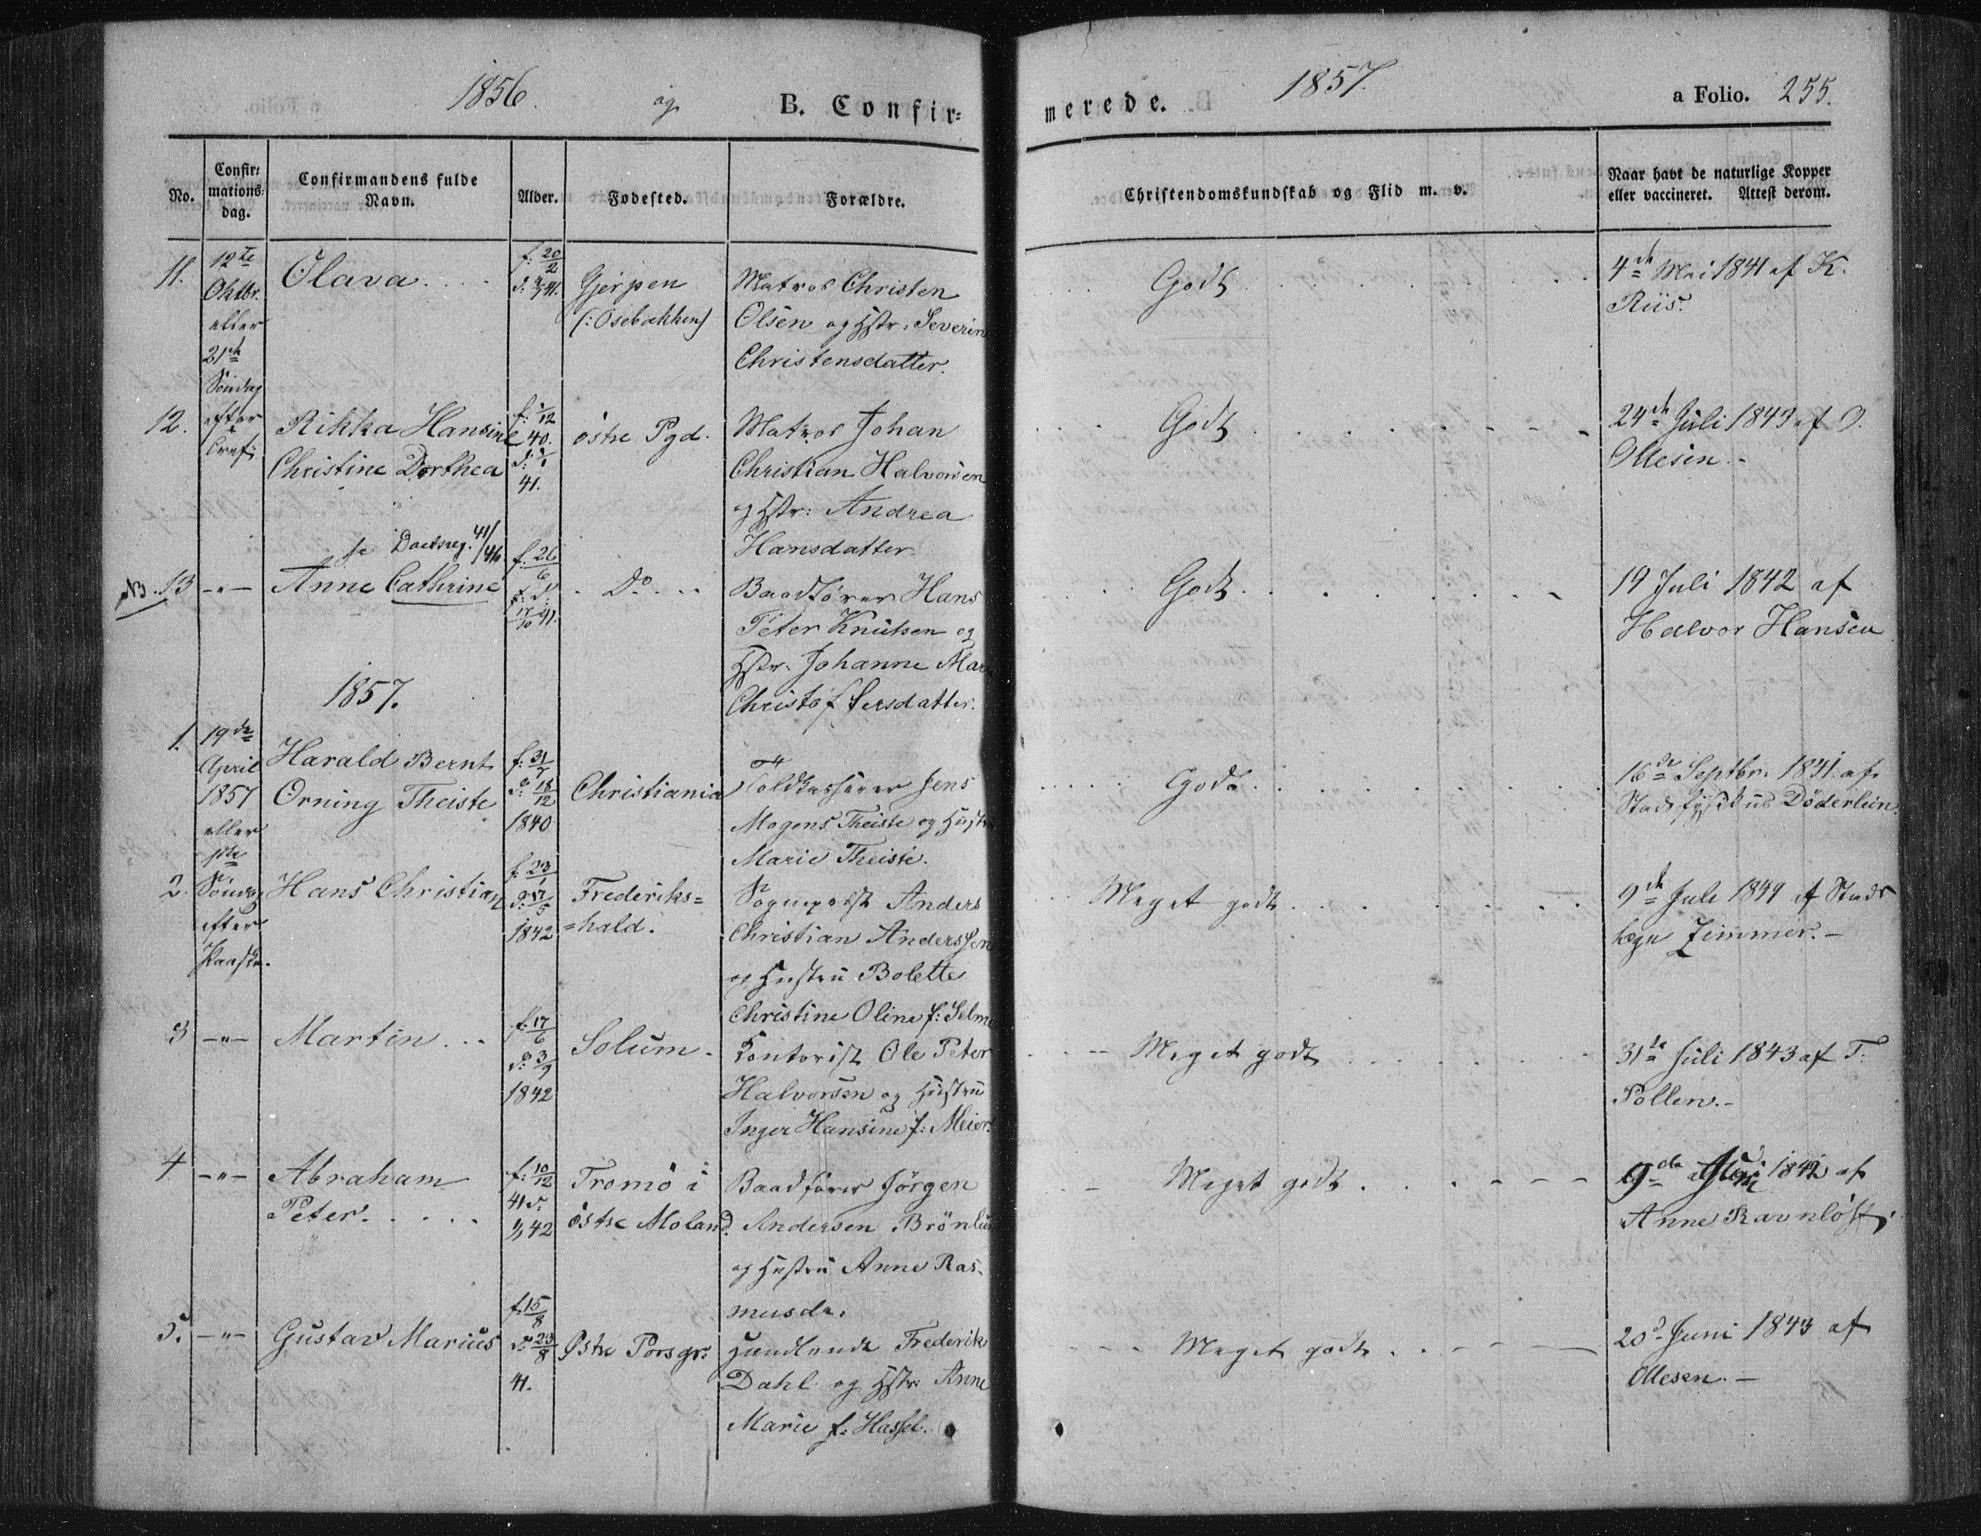 1856. og B. Confir= merede. 1857. a Folio. 255.
No. Confir= mations= dag. Confirmandens fulde Navn. Alder. Fødested. Forældre. Christendomskundskab og Flid m. v. Naar havt de naturlige Kopper eller vaccineret. Attest derom.
11. 12te Oktbr. eller 21de Søndag efter Olava . . . . f: 20/2 41. Gjerpen (: Osebakken) Matros Christen
Olsen og Hstr: Severin
Christensdatter.
Godt 4de Mai 1841 af K.
Riis.
12. Rikka Hansine f: 1/12 40. østre Pgd. Matros Johan
Christine Dorthea d: 41. Christian Halvorsen
og Hstr: Andrea
Hansdatter
Godt 24de Juli 1843 af O.
Ollesen. -
se Daabsreg. 41/46
NB. 13 -"- Anne Cathrine f. 26/6 d: 17/10 41. Do. Baadfører Hans
Peter Knutsen og
Hstr. Johanne Mar
Christoffersdatter.
Godt 19 Juli 1842 af
Halvor Hansen
1857.
1. 19de April 1857 eller 1ste Søndag efter Paaske. Harald Bernt f: 31/7 Christiania Toldkasserer Jens
Orning Theiste d: 18/12 1840 Mogens Theiste og Hustr
Marie Theiste.
Godt 16de Septbr. 1841 af
Stadsfysikus Døderlein.
2. Hans Christian f: 23/1 d: 17/5 1842 Frederiks= =hald. Sogneprest Anders
Christian Anderssen
og Hustru Bolette
Christine Oline f: Selme
Meget godt 9de Juli 1849 af Stads
læge Zimmer. -
3 -"- Martin . . . f: 17/6 d: 3/9 1842 Solum. Kontorist Ole Peter
Halvorsen og Hustru
Inger Hansine f: Meier.
Meget godt 31te Juli 1843 af T:
Pollen. -
4 -"- Abraham f: 10/12 41 d. 42 Tromø i Baadfører Jørgen
Peter. østre Moland. Andersen Brønlun
og Hustru Anne Ras-
musdr.
Meget godt 9de 1842 af
Anne Ravnløst
5. -"- Gustav Marius f. 15/8 d: 23/8 41. Østre Porsgr: Handlende Frederik
Dahl og Hstr: Anne
Marie f: Hassel.
Meget godt 20de Juni 1843 af
Ollesen. -